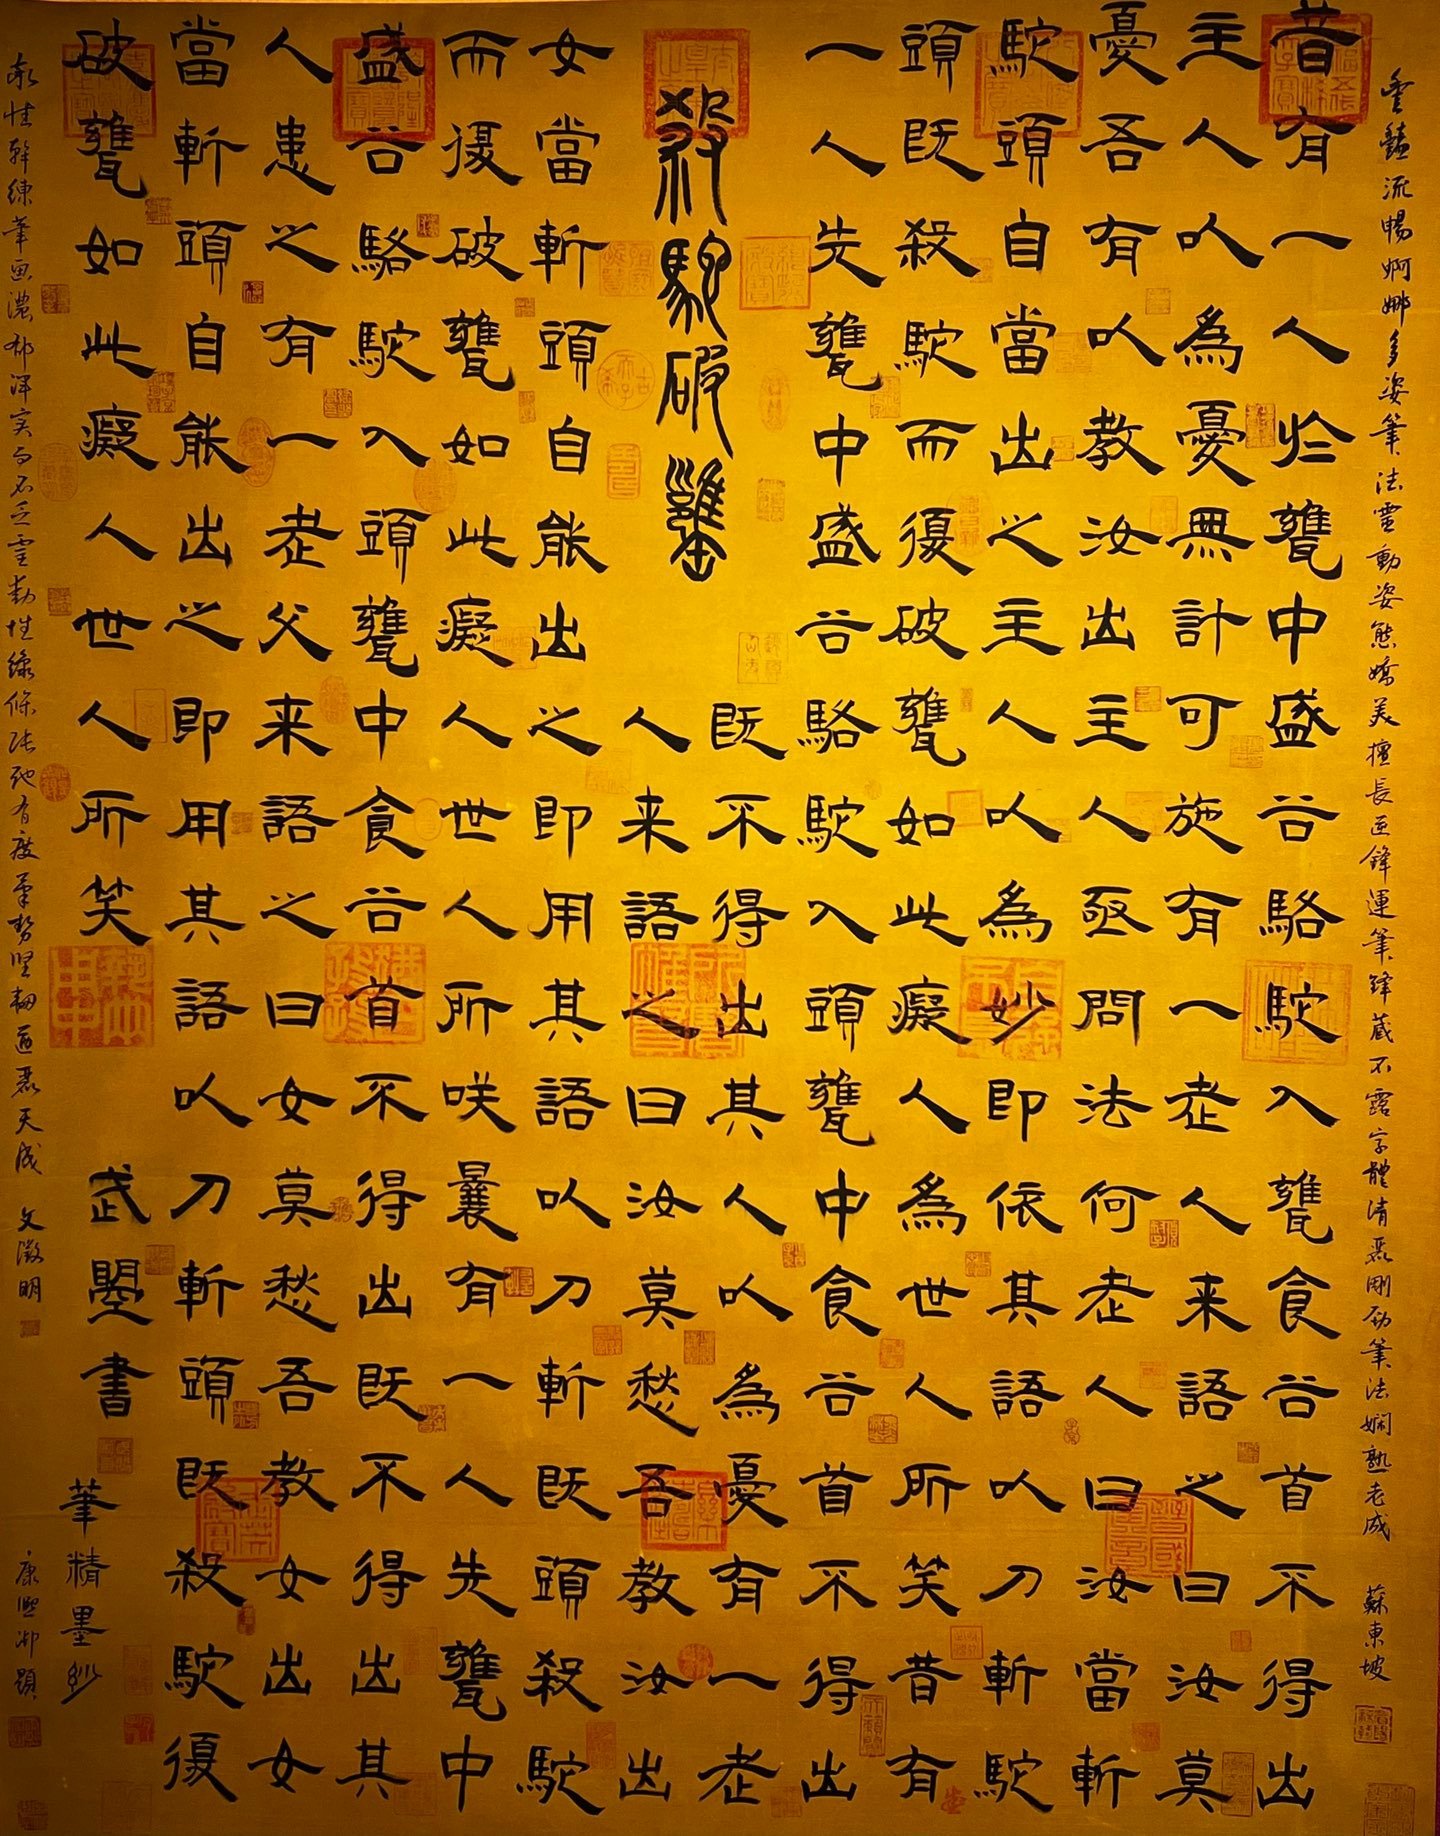 豔流暢婀娜多姿筆法靈動姿態嬌美擅長逆鋒運筆鋒藏不露字體清麗剛劲筆法嫻熟老成 蘇東坡
昔有一人於甕中盛谷駱駝入甕食谷首不得出
主人以為憂無計可施有一老人来語之曰汝莫
憂吾有以教汝出主人亟問法何老人曰汝當斬
駝頭自當出之主人以為妙即依其語以刀斬駝
頭既殺駝而復破甕如此癡人為世人所笑昔有
一人先甕中盛谷駱駝入頭甕中食谷首不得出
殺駝破甕
既不得出其人以為憂有一老
人来語之曰汝莫愁吾教汝出
女當斬頭自能出之即用其語以刀斬既頭殺駝
而復破甕如此癡人世人所咲曩有一人先甕中
盛谷駱駝入頭甕中食谷首不得出既不得出其
人患之有一老父来語之曰女莫愁吾教女出女
當斬頭自能出之即用其語以刀斬頭既殺駝復
破甕如此癡人世人所笑 武曌書
筆精墨紗
康熙御題
性幹練筆画濃郁渾实而不乏靈動性線條張弛有度筆勢坚韧遒麗天成 文徵明